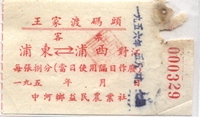 王家渡码頭
客票
浦東⇌浦西野
每張捌分(當日使用隔日作廢)
一九五 年 月 日
中河鄉益民農業社
一九五六年
000329